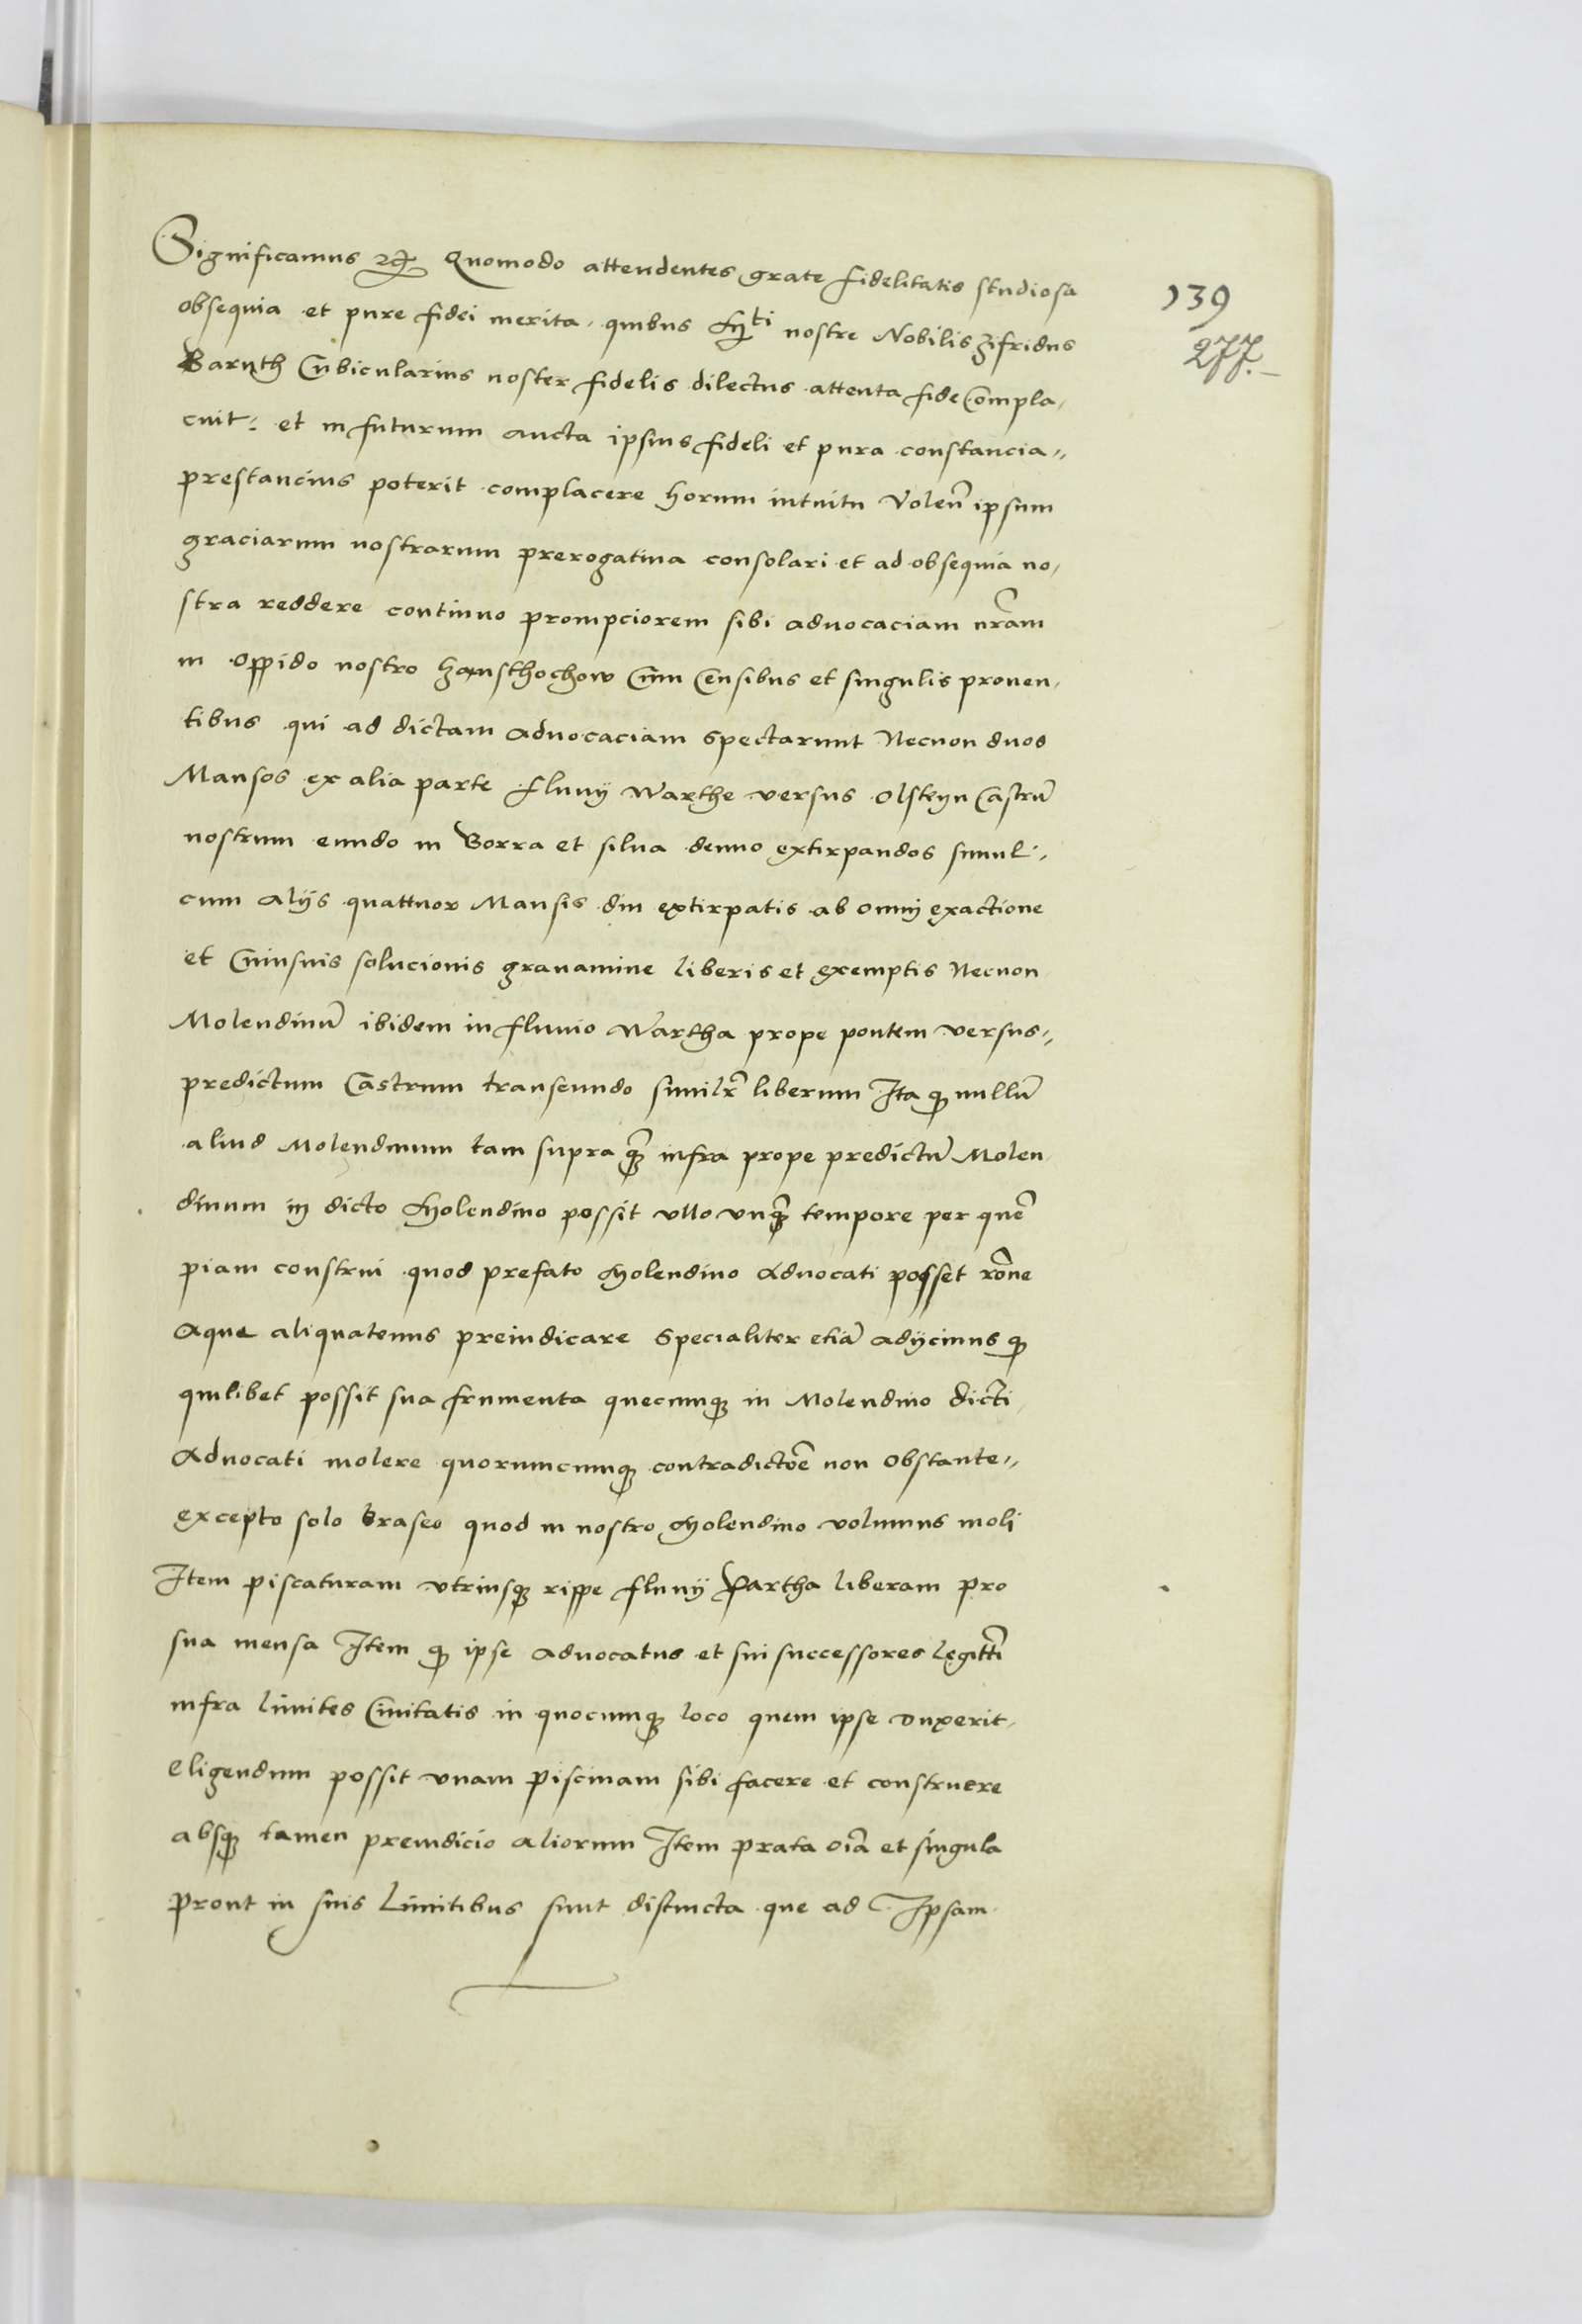 Significamus etc Quomodo attendentes grate fidelitatis studiosa
139
obsequia et pure fidei merita quibus M^ti nostre Nobilis Zifridus
277.
Baruth Cubicularius noster fidelis dilectus attenta fide Compla-
cuit: et in futurum aucta ipsius fideli et pura constancia
prestancius poterit complacere horum intuitu volen̄ ipsum
graciarum nostrarum prerogatiua consolari et ad obsequia no-
stra reddere continuo prompciorem sibi aduocaciam nr̄am
in oppido nostro Hansthochow Cum Censibus et singulis prouen-
tibus qui ad dictam aduocaciam spectarunt Necnon duos
Mansos ex alia parte fluuij Warthe versus Olsteyn Castrū
nostrum eundo in Borra et silua denuo extirpandos simul
cum alijs quattuor Mansis diu extirpatis ab omnj exactione
et Cuiusuis solucionis grauamine liberis et exemptis Necnon
Molendinū ibidem in fluuio Wartha prope pontem versus
predictum Castrum transeundo similr̄ liberum Ita q̨ nullū
aliud Molendinum tam supra q̄ infra prope predictū Molen
dinum in dicto Molendino possit vllo vnq̄ tempore per quē
piam construi quod prefato Molendino Aduocati posset rōne
Aque aliquatenus preiudicare Specialiter etiā adijcimus q̨
quilibet possit sua frumenta quecumq̨ in Molendino dicti
Aduocati molere quorumcumq̨ contradictōe non obstante
excepto solo braseo quod in nostro Molendino volumus moli
Item piscaturam vtriusq̨ rippe fluuij Wartha liberam pro
sua mensa Item q̨ ipse aduocatus et sui successores legittī
infra limites Ciuitatis in quocumq̨ loco quem ipse duxerit
eligendum possit vnam piscinam sibi facere et construere
absq̨ tamen preiudicio aliorum Item prata oīa et singula
prout in suis Limitibus sunt distincta que ad Ipsam